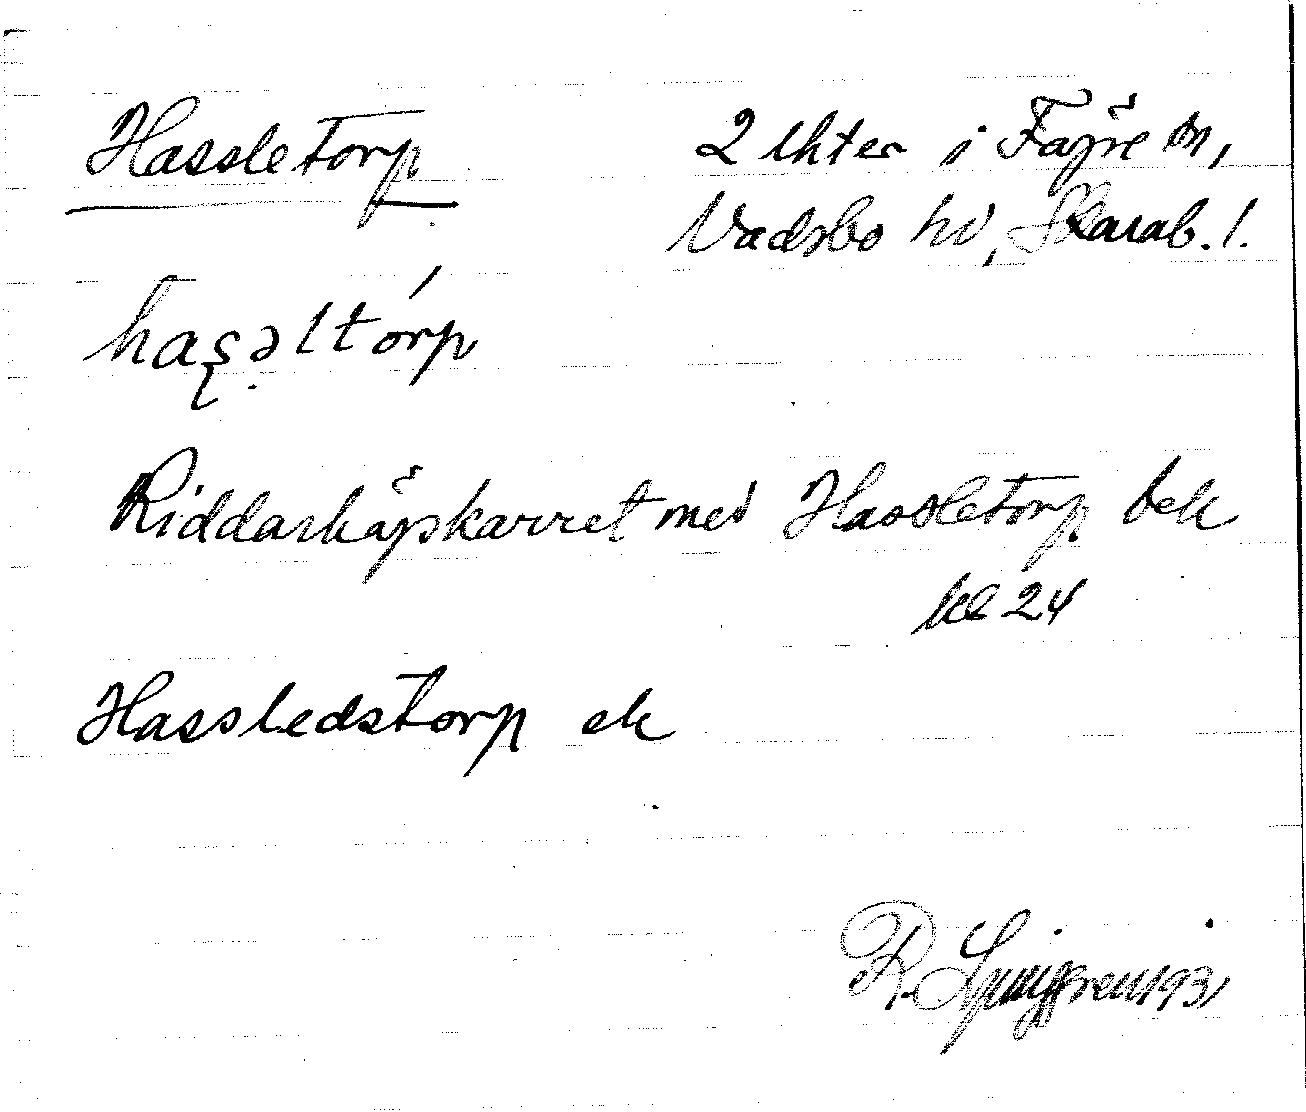 Hassletorp
2 lhter i Fägre sn,
Vadsbo hd, Skarab. l.
hasəltórp
Riddarhåpskarret med Hassletorp bek
kl 24
Hassledstorp ek
R. Ljunggren 1931